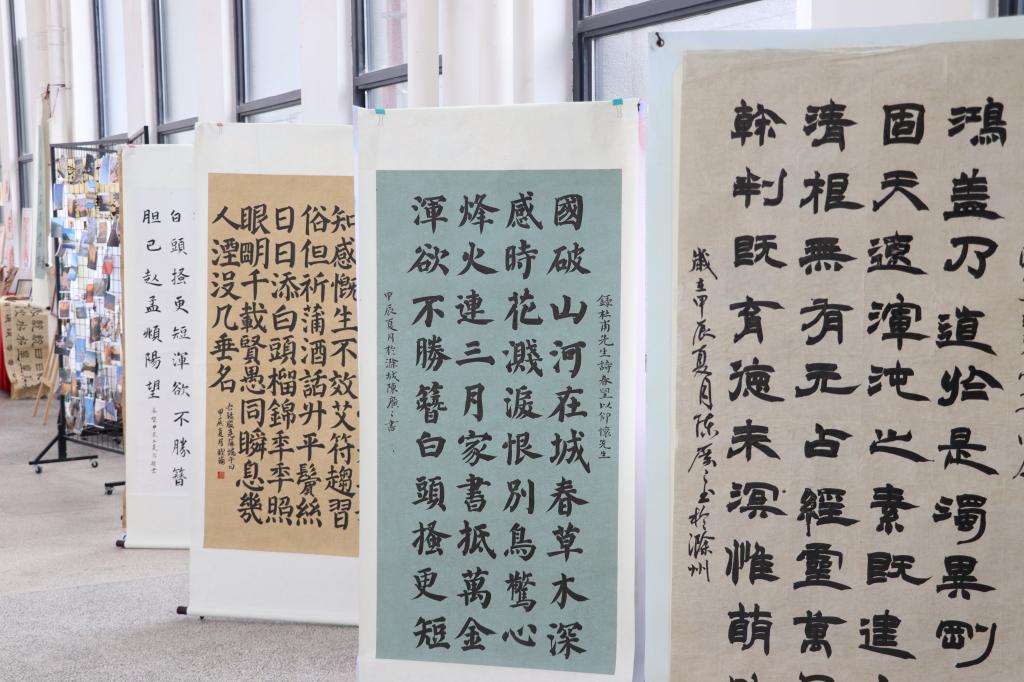 鴻盖乃道始是濁異剛
固天遠渾沌之素既建
清根無有元占經靈萬
幹判既育德未溟惟萌
歲在甲辰夏月陈广之書於滁州
錄杜甫先生詩春望以仰懷先生
國破山河在城春草木深
感時花濺淚恨別鳥驚心
烽火連三月家書抵萬金
渾欲不勝簪白頭搔更短
甲辰夏月於滁城陳廣之書
知感慨生不效艾符趨習
俗但祈蒲酒話升平鬢絲
日日添白頭榴錦年年照
眼明千載賢愚同瞬息幾
人湮沒几垂名
白頭搔更短渾欲不勝簪
胆已赵孟頫陽望